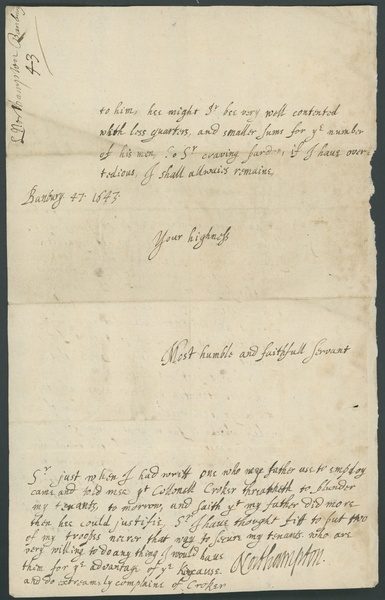 Northampton Banbury
43
to him, hee might Sr bee very well contented
with less quarters, and smaller sums for ye number
of his men, So Sr craving pardon, if I have over
tedious, I shall allwaies remaine,
Banbury 47. 1643.
Your highness
Most humble and faithfull servant
Sr just when I had writt one who my father use to employ
came and told mee yt Collonell Croker threatneth to plunder
my tenants, to morrow, and saith yt my father did more
then hee could justifie, Sr I have thought fitt to put two
of my troopes nerer that way to secure my tenants who are
very willing to do any thing I would have
them for ye advantage of ye Kgs cause
and do extreamely complaine of Croker
Northampton.